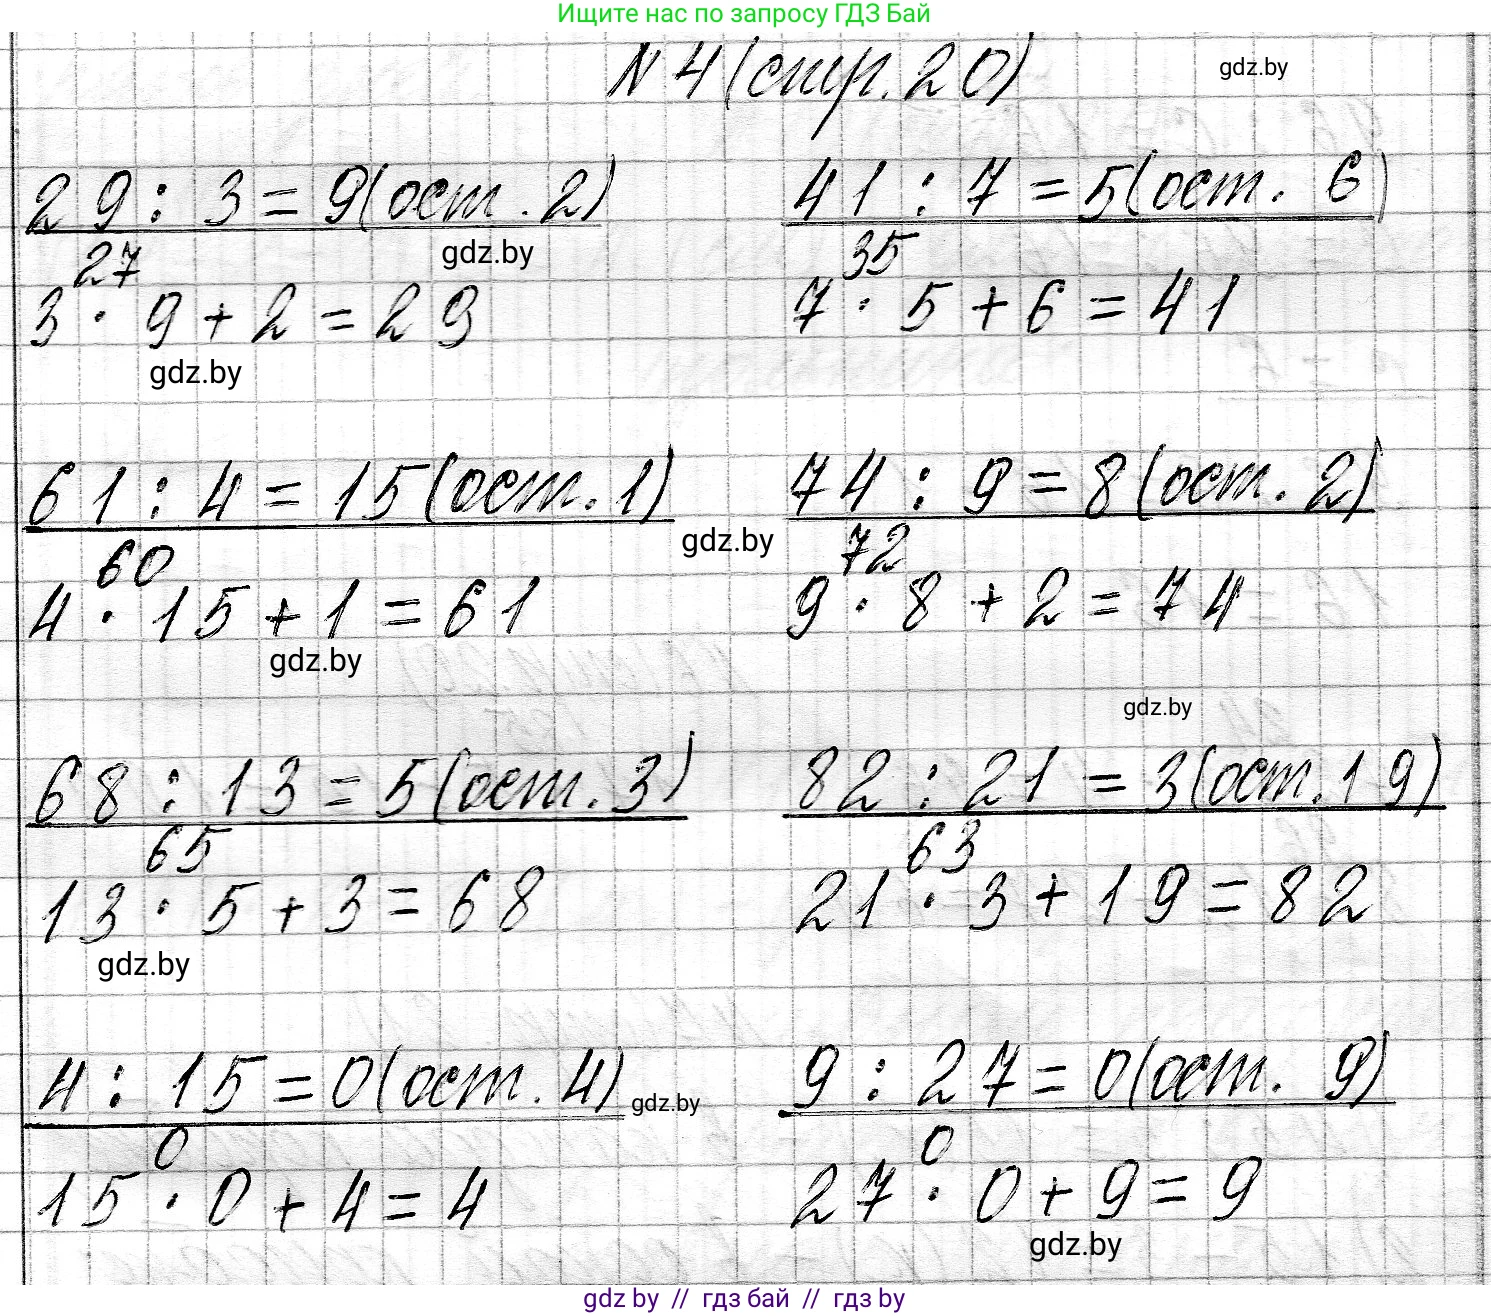 Ищите нас по запросу ГДЗ Бай
N 4 (стр. 20)
gdz.by
29 : 3 = 9 (ост. 2)
41 : 7 = 5 (ост. 6)
27
gdz.by
35
3 · 9 + 2 = 29
7 · 5 + 6 = 41
gdz.by
61 : 4 = 15 (ост. 1)
74 : 9 = 8 (ост. 2)
60
gdz.by
72
4 · 15 + 1 = 61
9 · 8 + 2 = 74
gdz.by
gdz.by
68 : 13 = 5 (ост. 3)
82 : 21 = 3 (ост. 19)
65
63
13 · 5 + 3 = 68
21 · 3 + 19 = 82
gdz.by
4 : 15 = 0 (ост. 4)
gdz.by
9 : 27 = 0 (ост. 9)
0
0
15 · 0 + 4 = 4
27 · 0 + 9 = 9
gdz.by
gdz by // гдз бай // гдз by